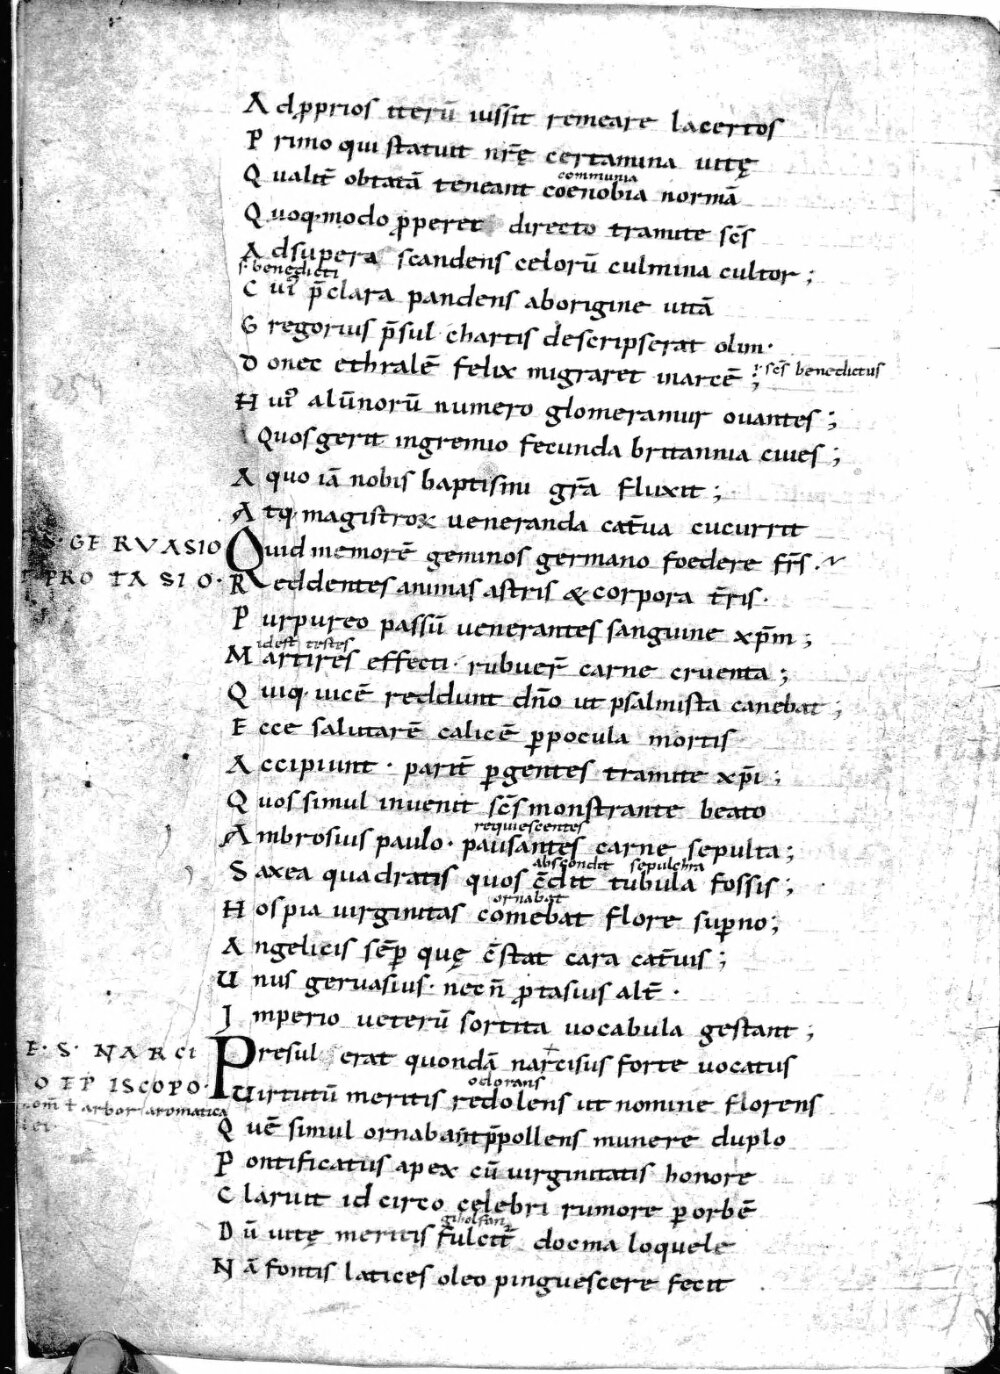 Ad ꝓprios iterū iussit remeare lacertos
Primo qui statuit nr̄ę certamina uitę
communia
Qualit̄ obtatā teneant coenobia normā
Quoq· modo ꝓperet directo tramite sc̄s
Ad supera scandens celorū culmina cultor ;
s· benedicti
Cui᷒ p̄clara pandens ab origine uitā
Gregorius p̄sul chartis descripserat olim·
Donec ethralē felix migraret in arcē ; s· sc̄s benedictus
Hui᷒ alūnorū numero glomeramur ouantes ;
Quos gerit in gremio fecunda britannia ciues ;
A quo iā nobis baptismi gr̄a fluxit ;
Atq· magistroꝝ ueneranda cat̄ua cucurrit
GERVASIO Quid memorē geminos germano foedere fr̄s .
PROTASIO· Reddentes animas astris & corpora t̄ris·
Purpureo passū uenerantes sanguine xp̄m ;
id est testes
Martires effecti· rubuer̄ carne cruenta ;
Quiq· uicē reddunt dn̄o ut psalmista canebat ;
Ecce salutarē calicē ꝑ pocula mortis
Accipiunt · parit̄ ꝑgentes tramite xp̄i ;
Quos simul inuenit sc̄s monstrante beato
requiescentes
Ambrosius paulo· pausantes carne sepulta ;
abscondit sepulchra
Saxea quadratis quos c̄dit tubula fossis ;
ornabat
Hos pia uirginitas comebat flore suꝑno ;
Angelicis sēꝑ quę c̄stat cara cat̄uis ;
Unus geruasius· nec n̄ ꝓtasius alt̄ ·
Imperio ueterū sortita uocabula gestant ;
E· S· NARCI Presul erat quondā narcisus forte uocatus
odorans
O EPISCOPO· Uirtutū meritis redolens ut nomine florens
arbor aromatica
Quē simul ornabant p̄pollens munere duplo
Pontificatus apex cū uirginitatis honore
Claruit id circo celebri rumore ꝑ orbē
Dū uitę meritis fulcit̄ docma loquele
Nā fontis latices oleo pinguescere fecit